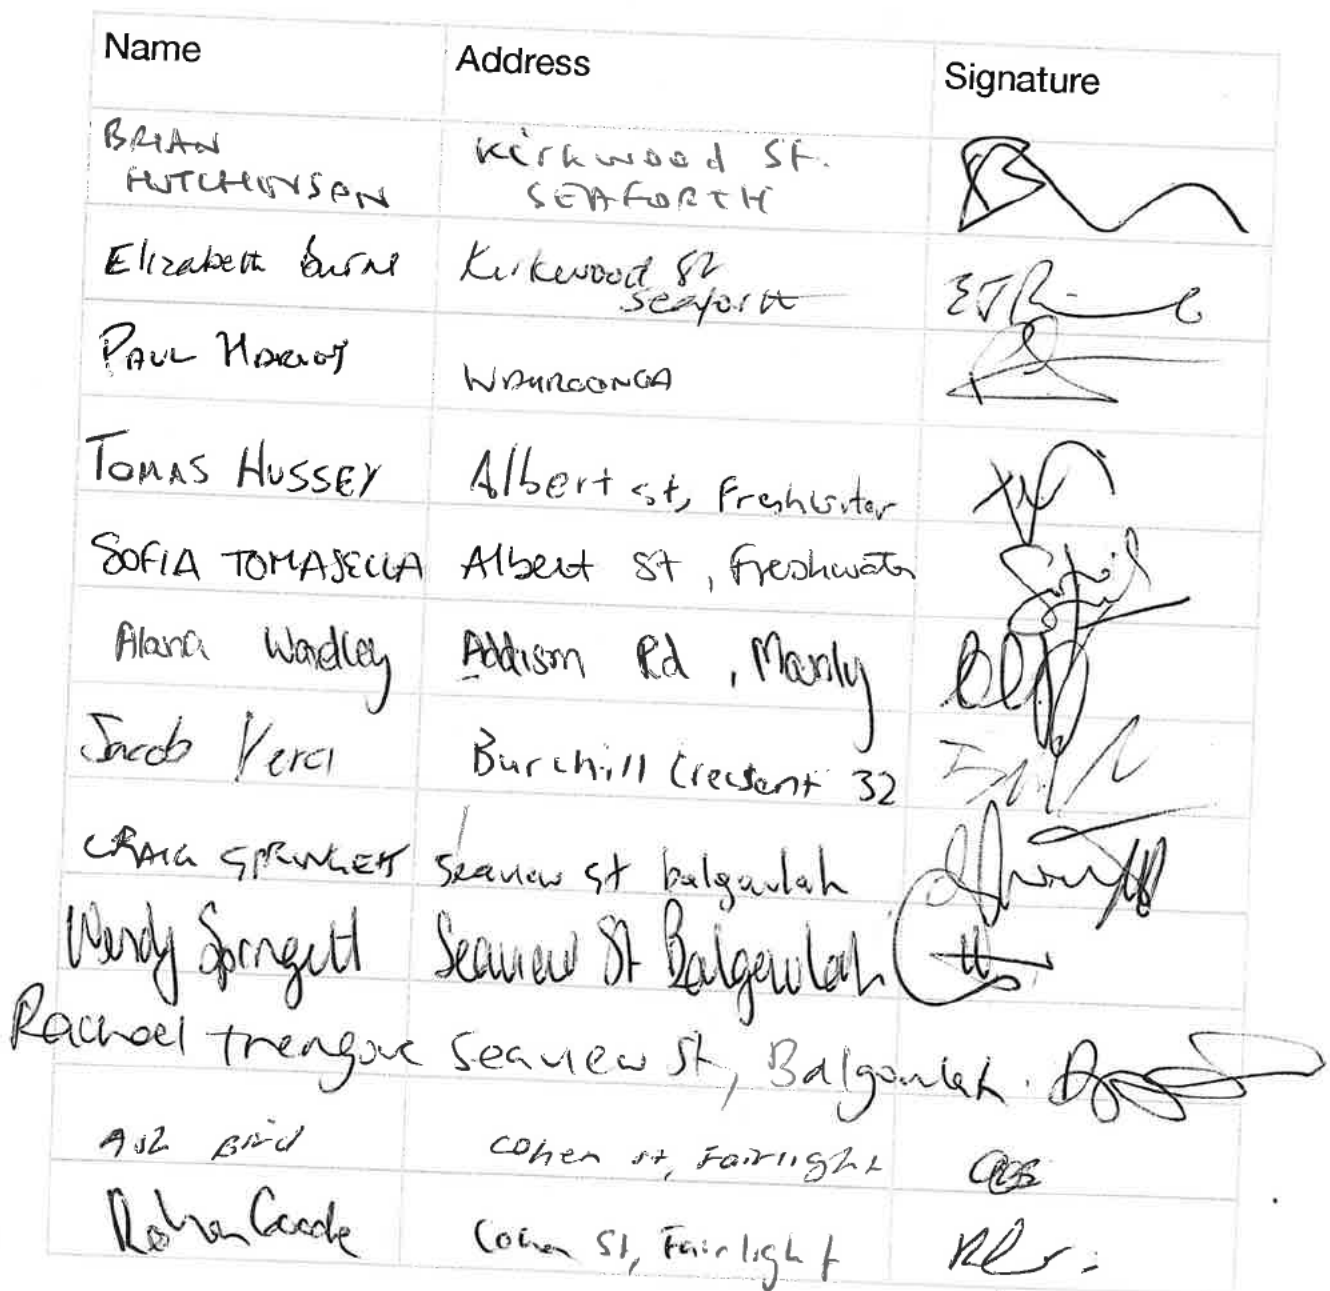 Name Address Signature
BRIAN Kirkwood St.
HUTCHINSON SEAFORTH
Elizabeth Burne Kirkwood St
Seaforth
PAUL WAHROONGA
TOMAS HUSSEY Albert st, Freshwater
SOFIA TOMASELLA Albert St, Freshwater
Alana Wadley Addison Rd, Manly
Jacob Burchill Crescent 32
CRAIG SPRINGETT Seaview st balgowlah
Wendy Springett Seaview St Balgowlah
Rachael trengove Seaview St, Balgowlah.
Bird Cohen st, Fairlight
Rohan Cohen St, Fairlight